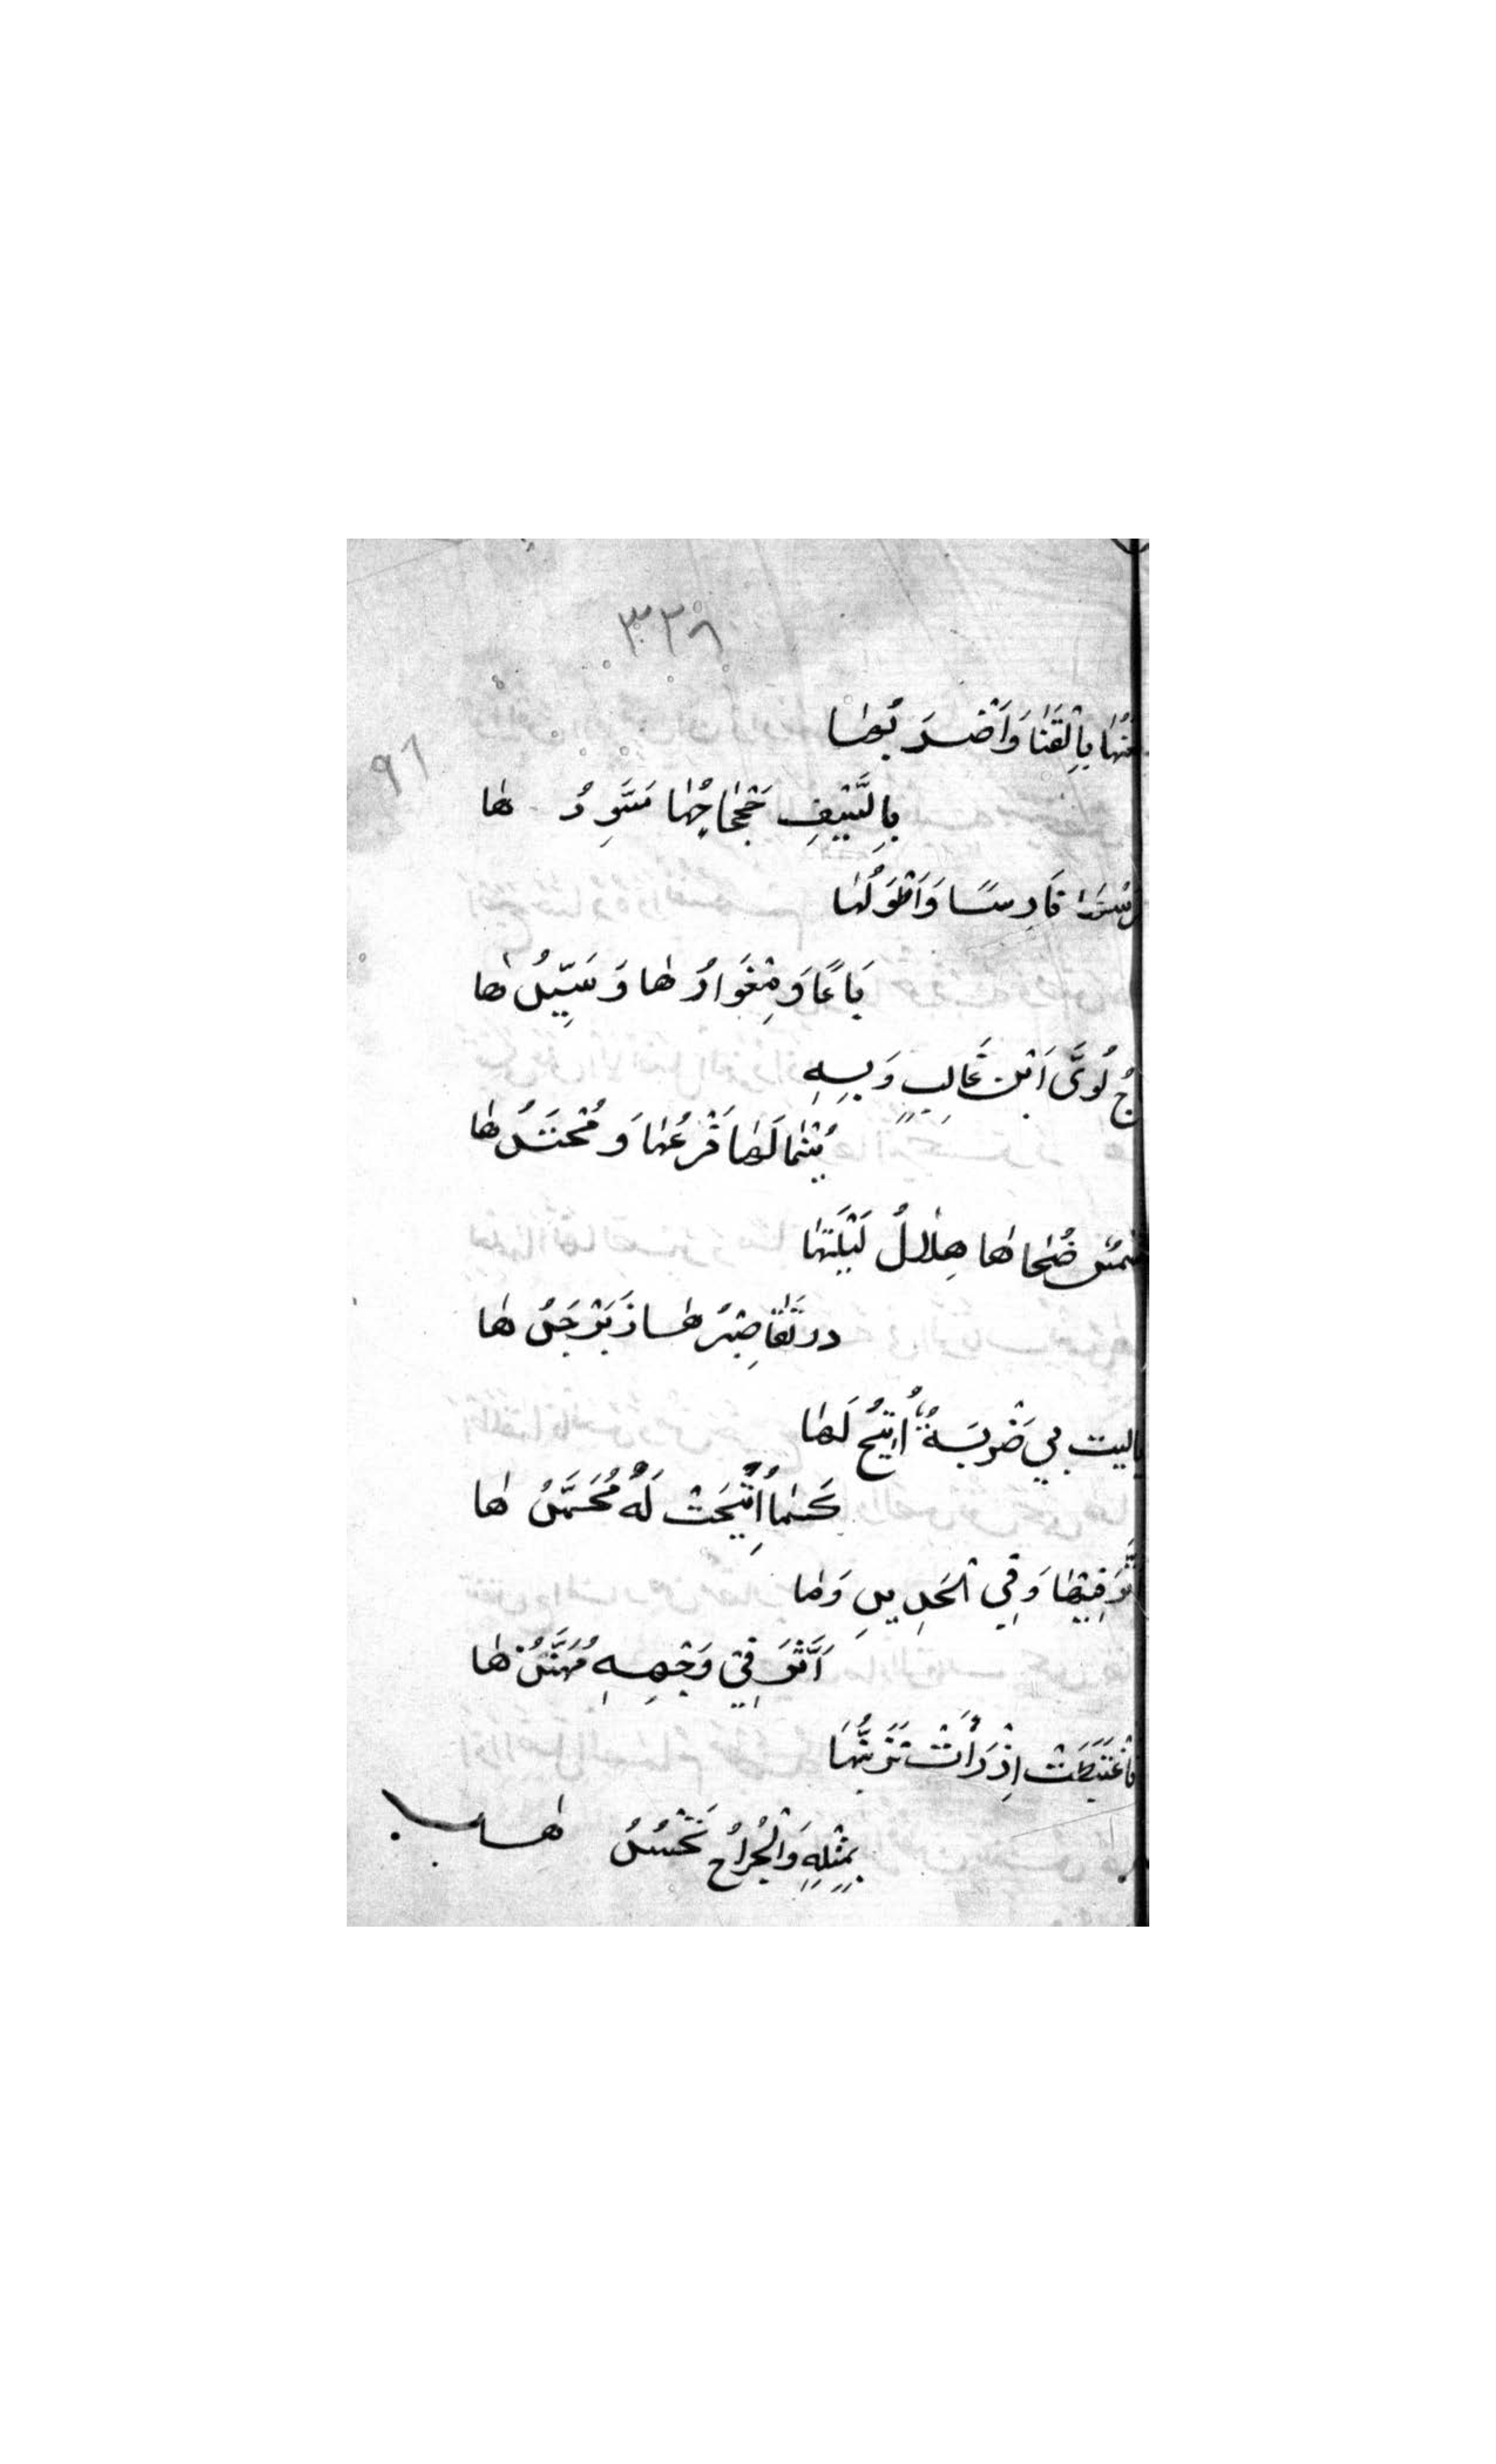 ٣٢٨
بِالْقَنَا وَاَضْرَبُهَا
٩٦
بِالسَّيْفِ جَحْجَاحُهَا مُسَوَّدُهَا
فَارِسًا وَاَطْوَلُهَا
بَاعًا وَمِغْوَارُهَا وَسَيِّدُهَا
لُوَىِّ اَبْنِ غَالِبٍ وَبِهِ
سَمَا لَهَا فَرْعُهَا وَمُحْتَدُهَا
شَمْسُ ضُحَاهَا هِلَالُ لَيْلَتِهَا
در تَقَاصِيرُهَا زَبَرْجَدُهَا
ياليت بِي ضَرْبَةً اُتِيحُ لَهَا
كَمَا اُتِيحَتْ لَهُ مُحَمَّدُهَا
اَثَّرَ فِيهَا وَفِي الْحَدِيدِ وَمَا
اَثَّرَ فِي وَجْهِهِ مُهَنَّدُهَا
فَاغْتَبَطَتْ اِذْ رَاَتْ تَزَيُّنَهَا
بِمِثْلِهِ وَالْجِرَاحُ تَحْسُدُهَا